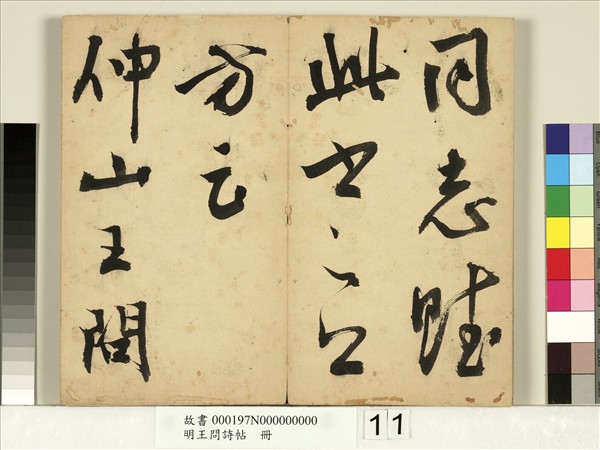 同志賦
此
方云
仲山王問
故書 000197N000000000
明王問詩帖 冊
11